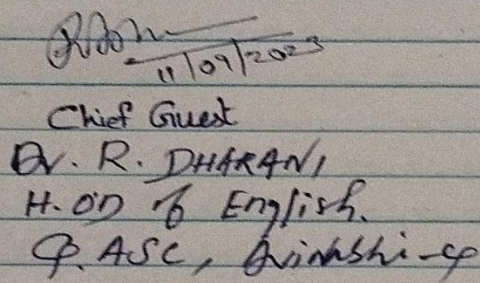 11/09/2023
Chief Guest
Dr. R. DHARANI
H.OD of English.
G.ASC, Avinashi